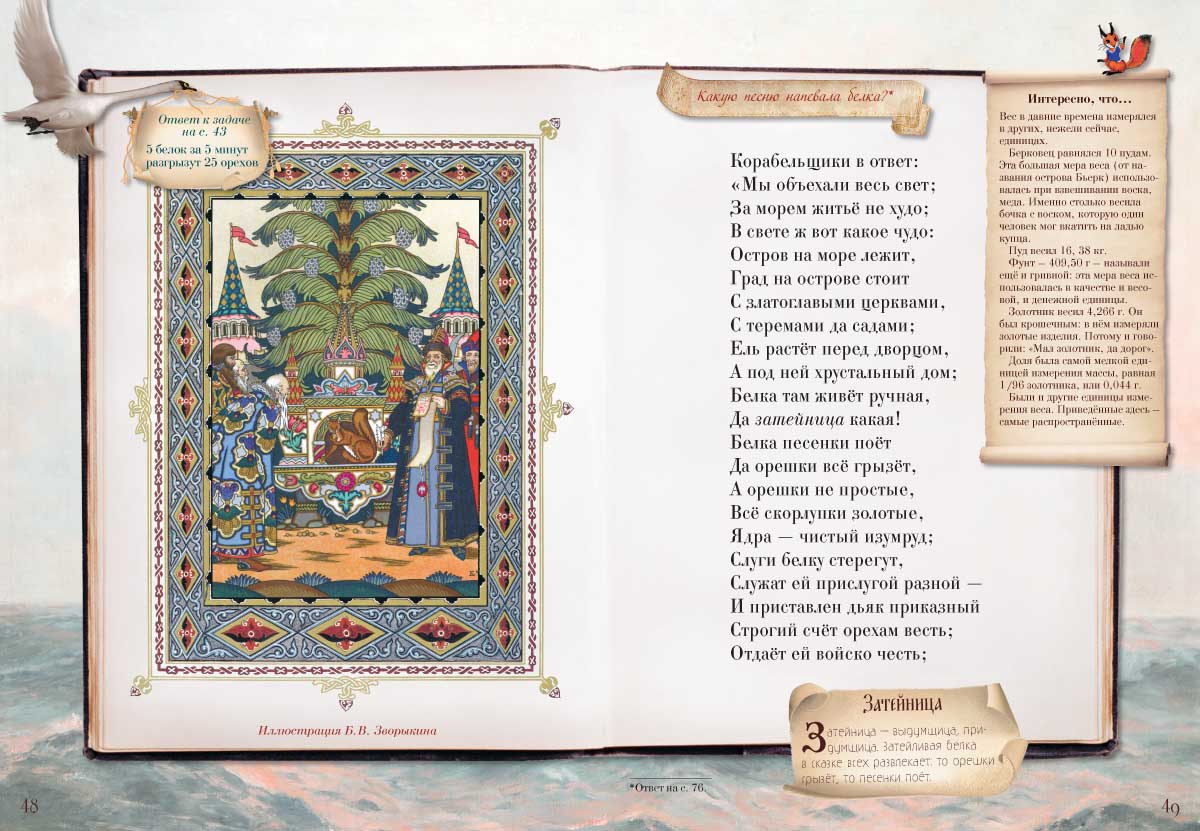 Ответ к задаче
на с. 43
5 белок за 5 минут
разгрызут 25 орехов
Иллюстрация Б.В. Зворыкина
48
Какую песню напевала белка?*
Корабельщики в ответ:
«Мы объехали весь свет;
За морем житьё не худо;
В свете ж вот какое чудо:
Остров на море лежит,
Град на острове стоит
С златоглавыми церквами,
С теремами да садами;
Ель растёт перед дворцом,
А под ней хрустальный дом;
Белка там живёт ручная,
Да затейница какая!
Белка песенки поёт
Да орешки всё грызёт,
А орешки не простые,
Всё скорлупки золотые,
Ядра — чистый изумруд;
Слуги белку стерегут,
Служат ей прислугой разной —
И приставлен дьяк приказный
Строгий счёт орехам весть;
Отдаёт ей войско честь;
Интересно, что…
Вес в давние времена измерялся
в других, нежели сейчас,
единицах.
Берковец равнялся 10 пудам.
Эта большая мера веса (от на-
звания острова Бьерк) использо-
валась при взвешивании воска,
меда. Именно столько весила
бочка с воском, которую один
человек мог вкатить на ладью
купца.
Пуд весил 16, 38 кг.
Фунт — 409,50 г — называли
ещё и гривной: эта мера веса ис-
пользовалась в качестве и весо-
вой, и денежной единицы.
Золотник весил 4,266 г. Он
был крошечным: в нём измеряли
золотые изделия. Потому и гово-
рили: «Мал золотник, да дорог».
Доля была самой мелкой еди-
ницей измерения массы, равная
1/96 золотника, или 0,044 г.
Были и другие единицы изме-
рения веса. Приведённые здесь —
самые распространённые.
Затейница
Затейница — выдумщица, при-
думщица. Затейливая белка
в сказке всех развлекает: то орешки
грызёт, то песенки поёт.
*Ответ на с. 76.
49